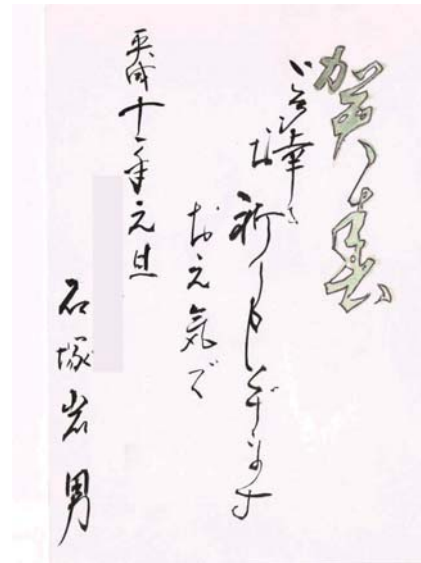 賀春
ご多幸を
お祈り申し上げます
お元気で
平成十一年元旦
石塚岩男